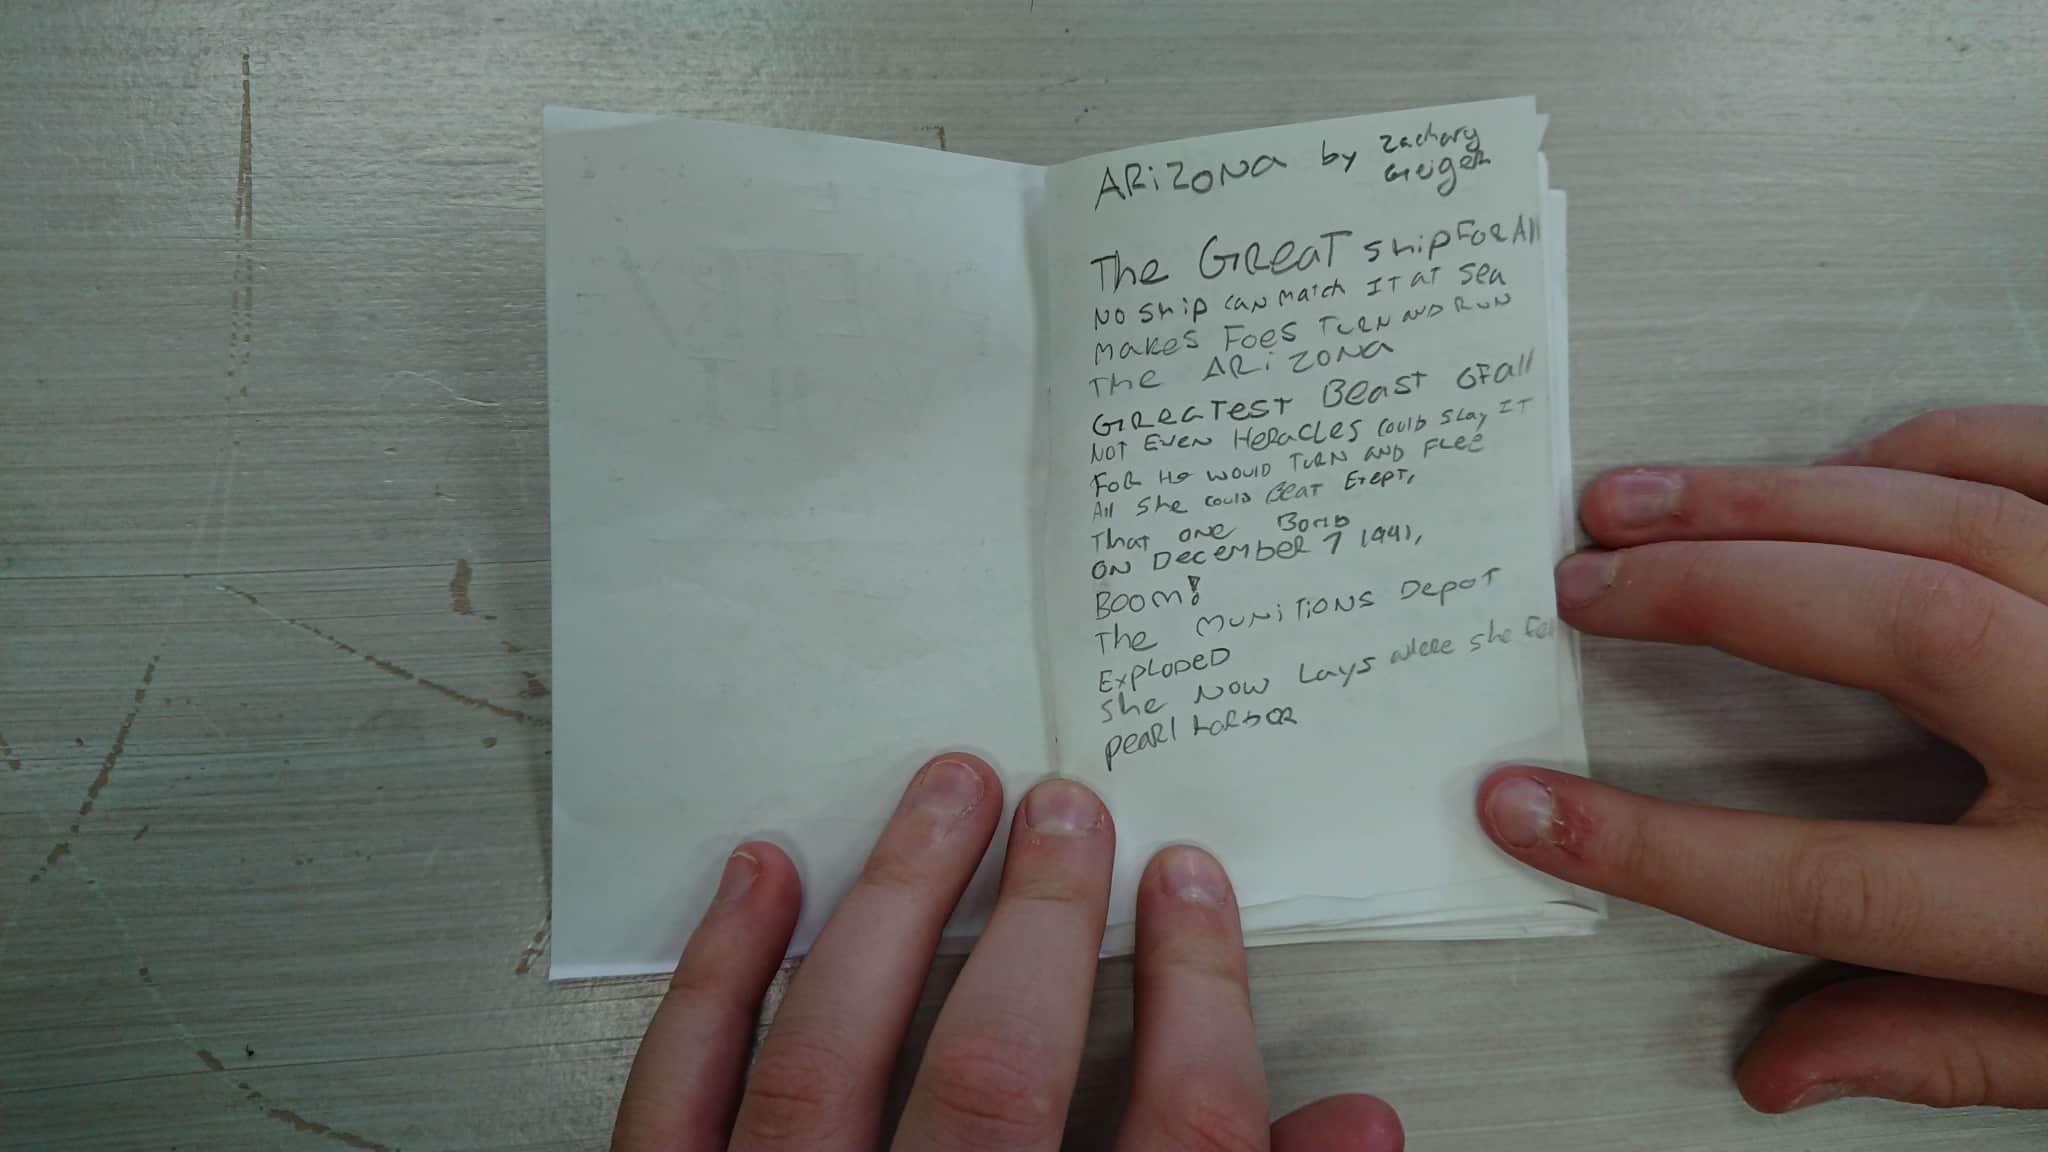 ARIZONA by Zachary
Geiger
The GREAT ship FOR All
NO ship can match IT at sea
makes Foes TURN AND RUN
The ARIZONA
GREATEST Beast OF all
NOT EVEN HERACLES could slay IT
FOR He would TURN AND Flee
All She could Beat Exept,
That one Bomb
ON December 7 1941,
Boom!
The MUNITIONS Depot
EXPLODED
She NOW Lays where she Fell
pearl harbor